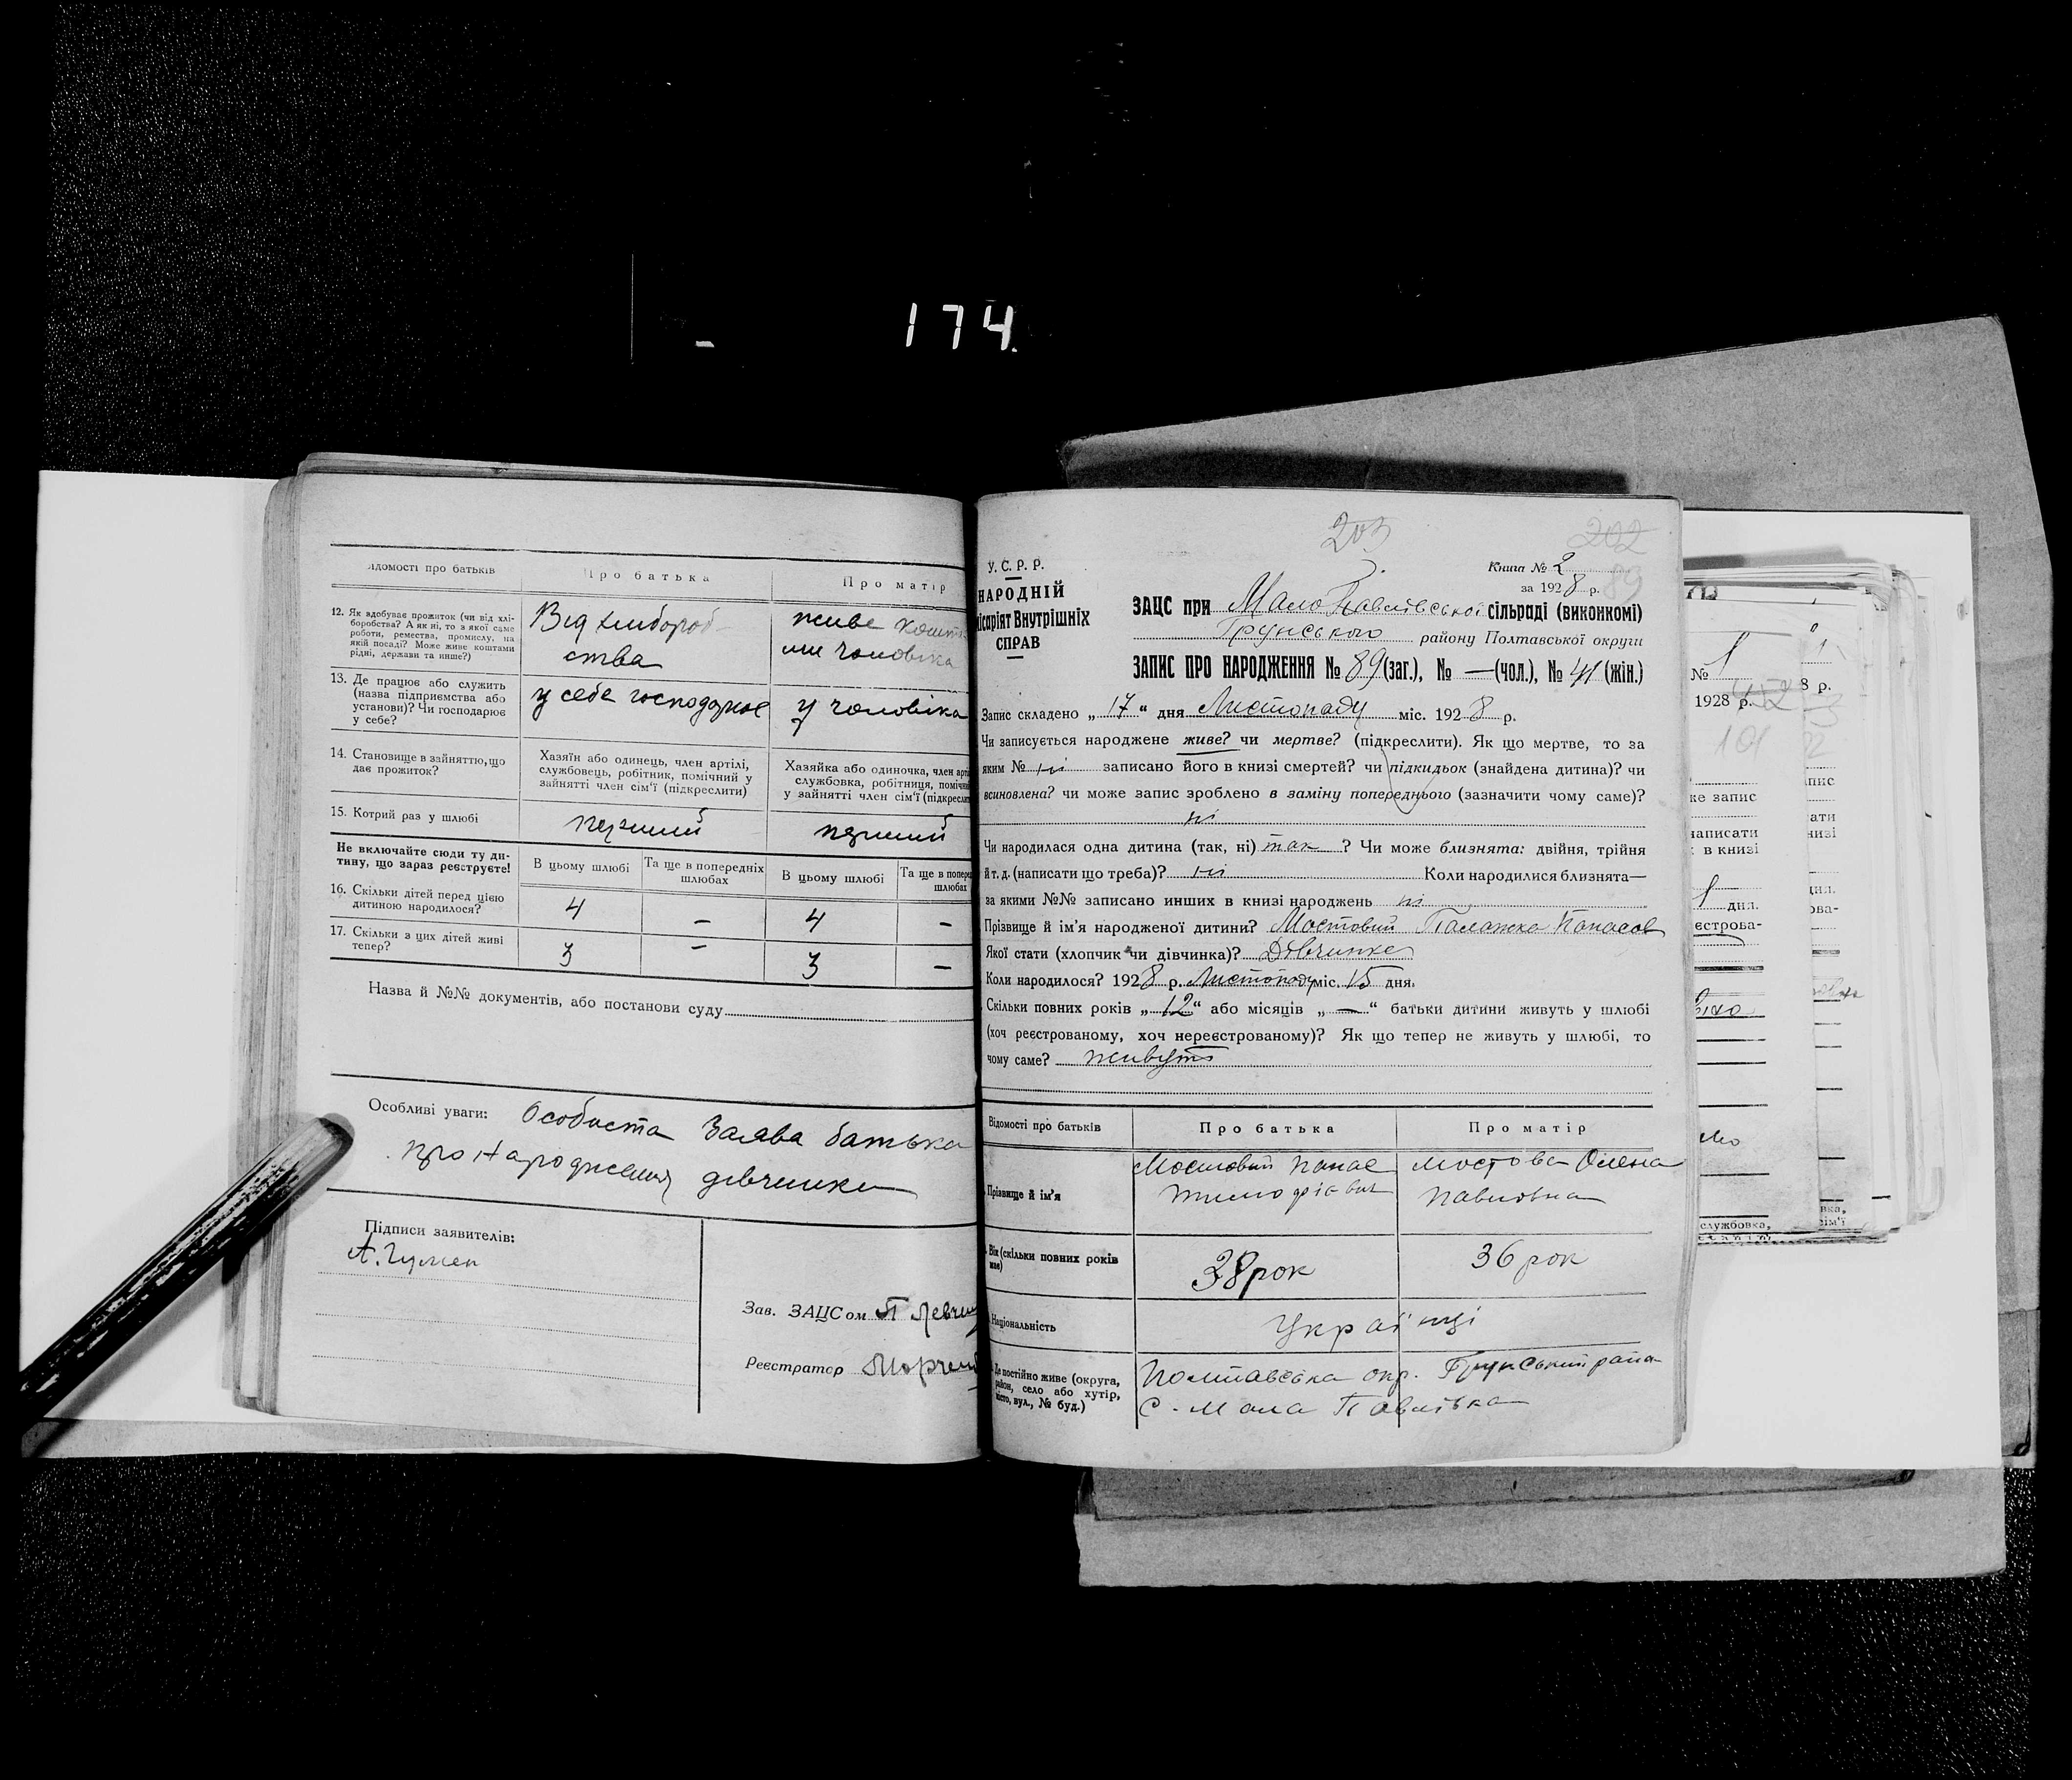 174.
Відомості про батьків
Про батька
Про матір
12. Як здобуває прожиток (чи від хлі-
боробства? А як ні, то з якої саме
роботи, ремества, промислу, на
якій посаді? Може живе коштами
рідні, держави та инше?)
Від хлібороб-
ства
живе кошта
ми чоловіка
13. Де працює або служить
(назва підприємства або
установи)? Чи господарює
у себе?
у себе господарює
у чоловіка
14. Становище в зайняттю, що
дає прожиток?
Хазяїн або одинець, член артілі,
службовець, робітник, помічний у
зайнятті член сім'ї (підкреслити)
Хазяйка або одиночка, член арті
службовка, робітниця, помічни
у зайнятті член сім'ї (підкресли
15. Котрий раз у шлюбі
перший
перший
Не включайте сюди ту ди-
тину, що зараз реєструєте!
В цьому шлюбі
Та ще в попередніх
шлюбах
В цьому шлюбі
Та ще в попере
шлюбах
16. Скільки дітей перед цією
дитиною народилося?
4 – 4 –
17. Скільки з цих дітей живі
тепер?
3 – 3 –
Назва й №№ документів, або постанови суду
Особливі уваги: Особиста Заява батька
про Народження дівчинки
Підписи заявителів:
Зав. ЗАЦСом
Реєстратор
203
202
89
У.С.Р.Р.
НАРОДНІЙ
ісаріят Внутрішніх
СПРАВ
Книга № 2
за 1928 р.
ЗАЦС при Мало Павлівської сільраді (виконкомі)
Грунського району Полтавської округи
ЗАПИС ПРО НАРОДЖЕННЯ № 89 (заг.), № — (чол.), № 41 (жін.)
Запис складено „17" дня Листопаду міс. 1928 р.
Чи записується народжене живе? чи мертве? (підкреслити). Як що мертве, то за
яким № ні записано його в книзі смертей? чи підкидьок (знайдена дитина)? чи
всиновлена? чи може запис зроблено в заміну попереднього (зазначити чому саме)?
ні
Чи народилася одна дитина (так, ні) так ? Чи може близнята: двійня, трійня
й т. д. (написати що треба)? ні Коли народилися близнята—
за якими №№ записано инших в книзі народжень ні
Прізвище й ім'я народженої дитини? Мостовий Палажка Панасов
Якої стати (хлопчик чи дівчинка)? Дівчинка
Коли народилося? 1928 р. Листопаду міс. 15 дня.
Скільки повних років „12" або місяців „—" батьки дитини живуть у шлюбі
(хоч реєстрованому, хоч нереєстрованому)? Як що тепер не живуть у шлюбі, то
чому саме? живуть
Відомості про батьків
Про батька
Про матір
Прізвище й ім'я
Мостовий Панас
Тимофієвич
Мостова Олена
Павловна
Вік (скільки повних років
має)
38 рок
36 рок
Національність
Українці
Де постійно живе (округа,
район, село або хутір,
місто, вул., № буд.)
Полтавська окр. Грунський район
С. Мала Павлівка
№ 1
1928 р.
8 р.
101